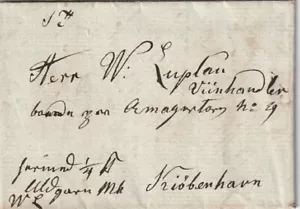 Herr W: Luplau
Viinhandler
boende paa Amagertorv No 9
hermed 1/4 ℔
Uldgarn Mk
W L
Kiöbenhavn